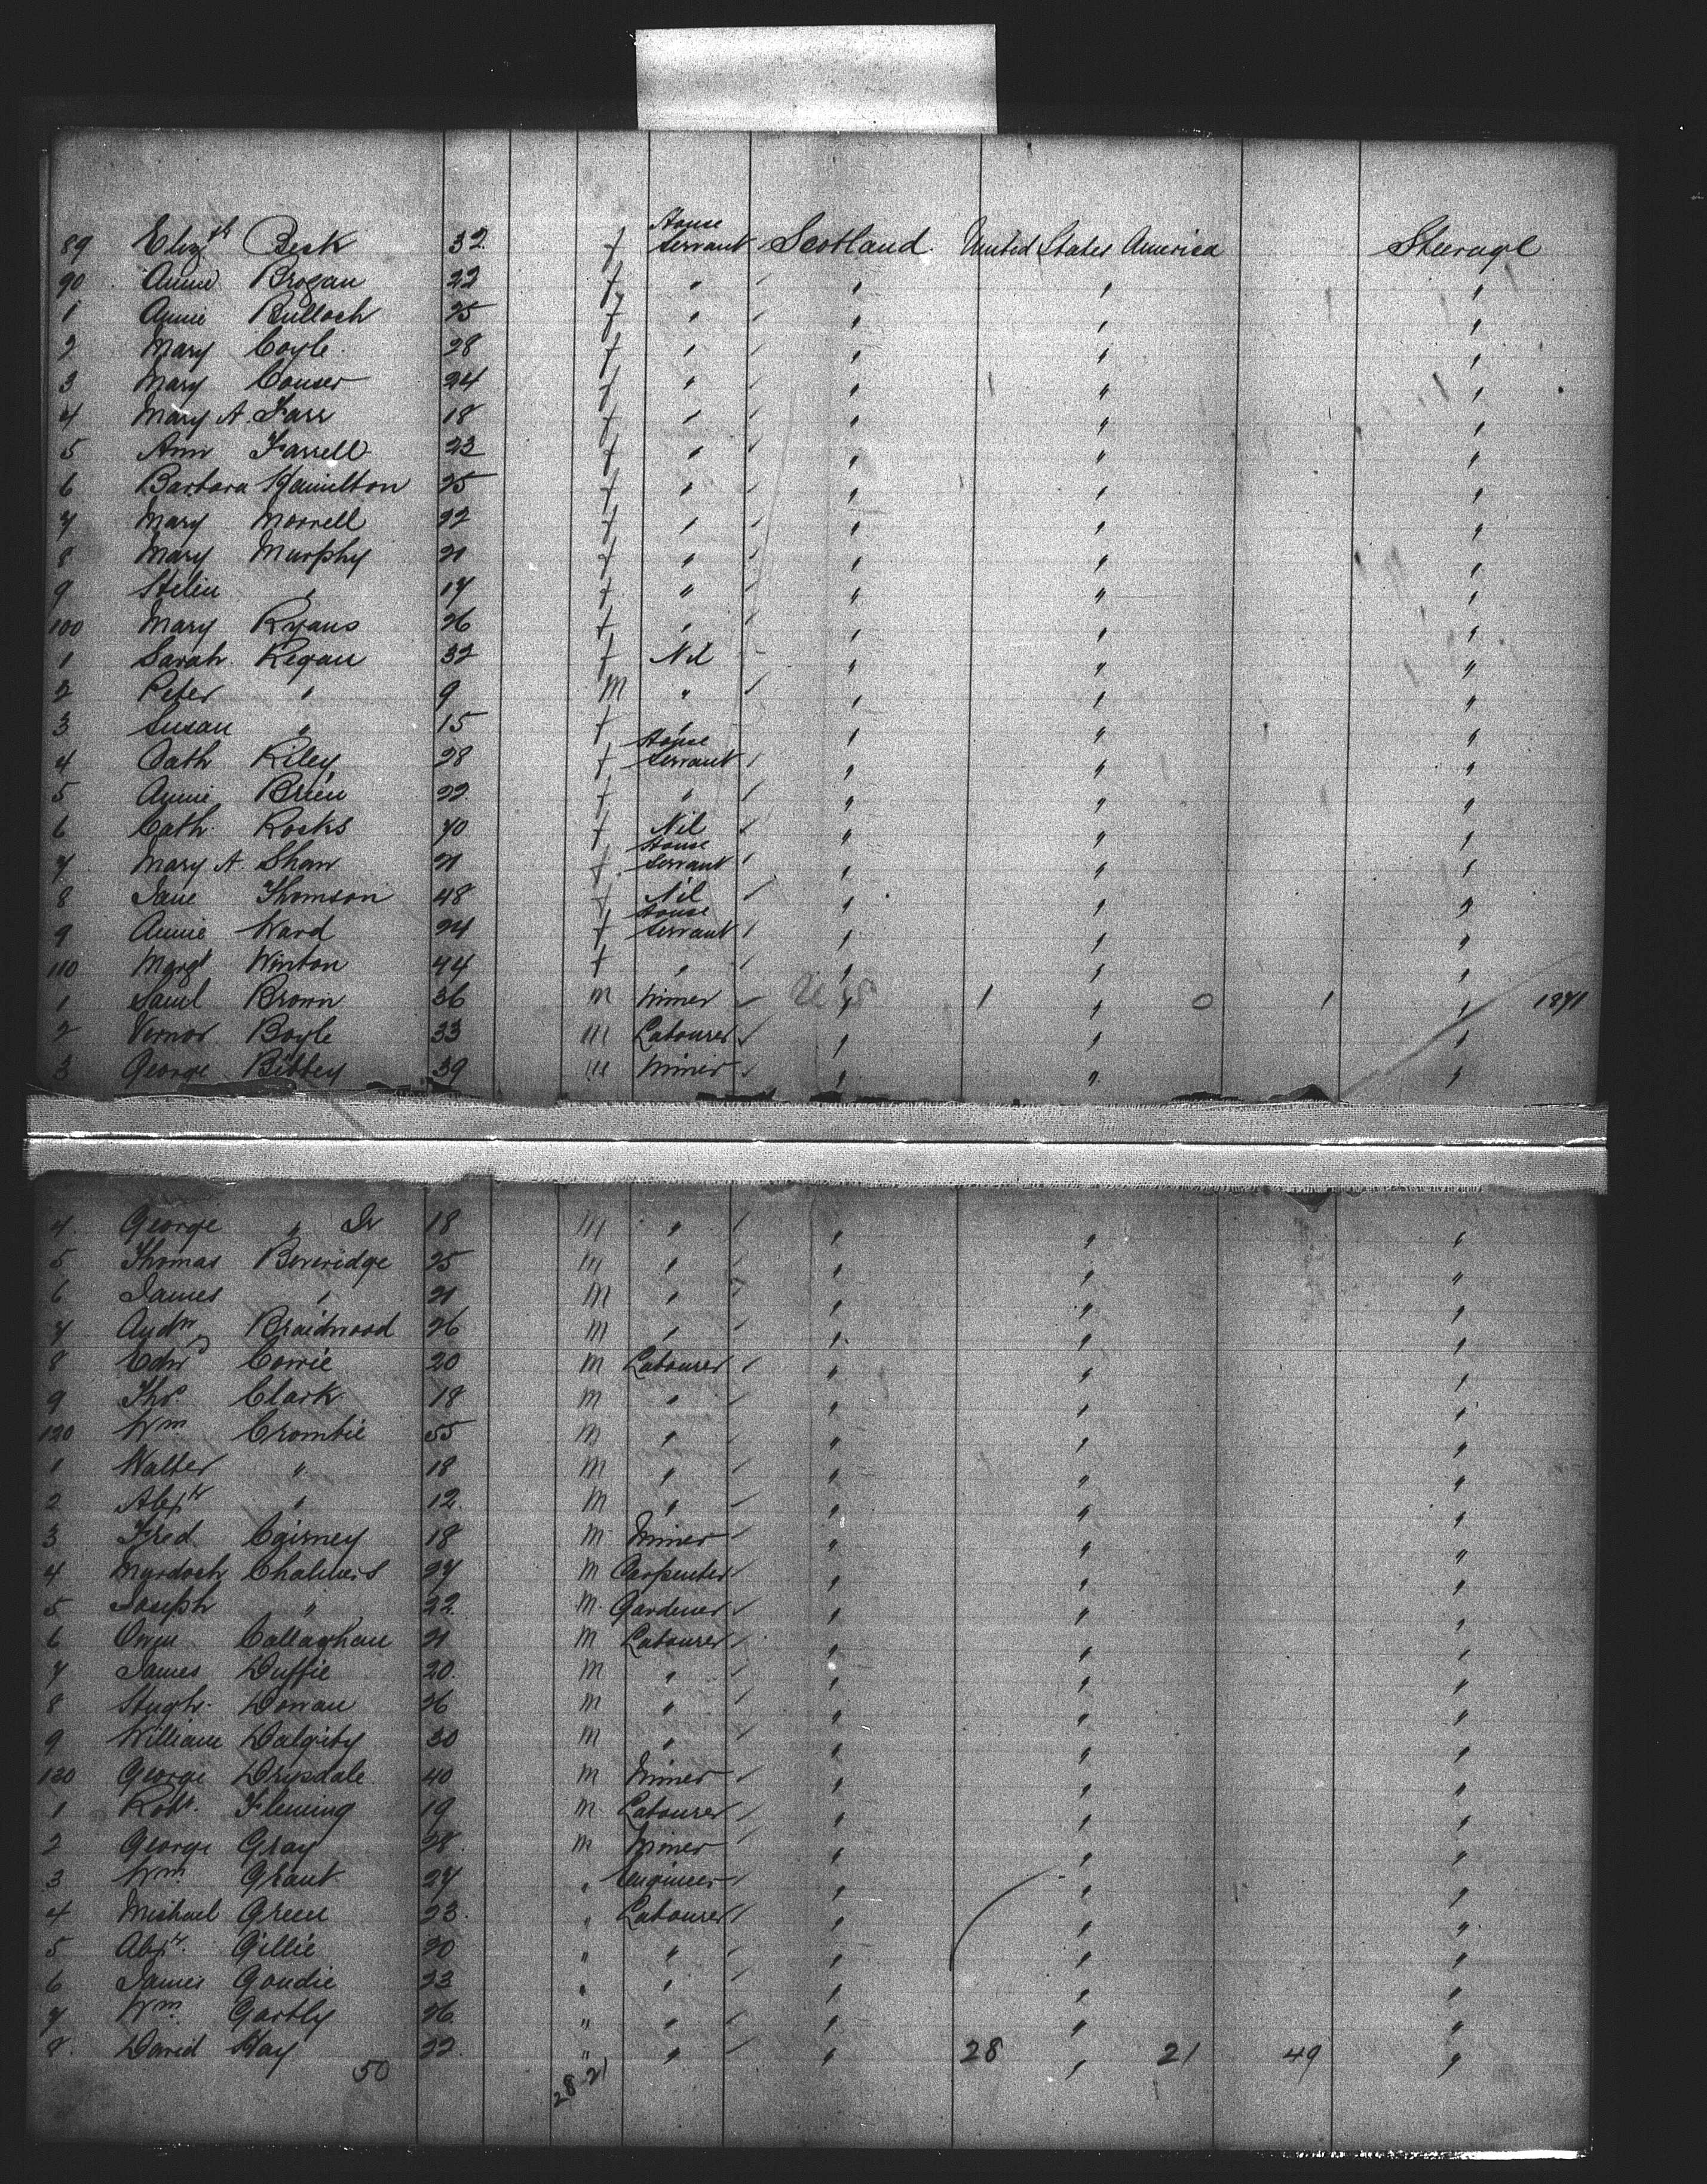 89 Elizth Beck 32 f House Servant Scotland United States America Steerage
90 Annie Brogan 22 f " " " "
1 Annie Bulloch 25 f " " " "
2 Mary Coyle 28 f " " " "
3 Mary 24 f " " " "
4 Mary A. Farr 18 f " " " "
5 Ann Farrell 23 f " " " "
6 Barbara Hamilton 25 f " " " "
7 Mary Morrell 22 f " " " "
8 Mary Murphy 21 f " " " "
9 Helen " 17 f " " " "
100 Mary Ryans 26 f " " " "
1 Sarah Regan 32 f Nil " " "
2 Peter " 9 m " " " "
3 Susan " 15 f " " " "
4 Cath Riley 28 f House Servant " " "
5 Annie Brien 22 f " " " "
6 Cath. Rocks 70 f Nil " " "
7 Mary A. Shaw 21 f House Servant " " "
8 Jane Thomson 48 f Nil " " "
9 Annie Ward 24 f House Servant " " "
110 Margt Winton 44 f " " " "
1 Saml Brown 36 m Miner " U S 1 " 0 1 " 1871
2 Boyle 33 m Labourer " " "
3 George Bibbey 39 m Miner " " "
4 George " Jr 18 m " " " "
5 Thomas Beveridge 25 m " " " "
6 James " 21 m " " " "
7 Braidwood 26 m " " " "
8 Edwd Corrie 20 m Labourer " " "
9 Thos. Clark 18 m " " " "
120 Wm Crombie 55 m " " " "
1 Walter " 18 m " " " "
2 Alexr " 12 m " " " "
3 Fred Cairney 18 m Miner " " "
4 Murdoch Chalmers 27 m Carpenter " " "
5 Joseph " 22 m Gardener " " "
6 Owen Callaghan 21 m Labourer " " "
7 James Duffie 20 m " " " "
8 Hugh 26 m " " " "
9 William Dalgity 30 m " " " "
130 George Drysdale 40 m Miner " " "
1 Robt. Fleming 19 m Labourer " " "
2 George Gray 28 m Miner " " "
3 Wm Grant 27 " Engineer " " "
4 Michael Green 23 " Labourer " " "
5 Alexr. Gillie 20 " " " " "
6 James Goudie 23 " " " " "
7 Wm Gartly 26 " " " " "
8 David Hay 22 " " " 28 " 21 49 "
50 28 21